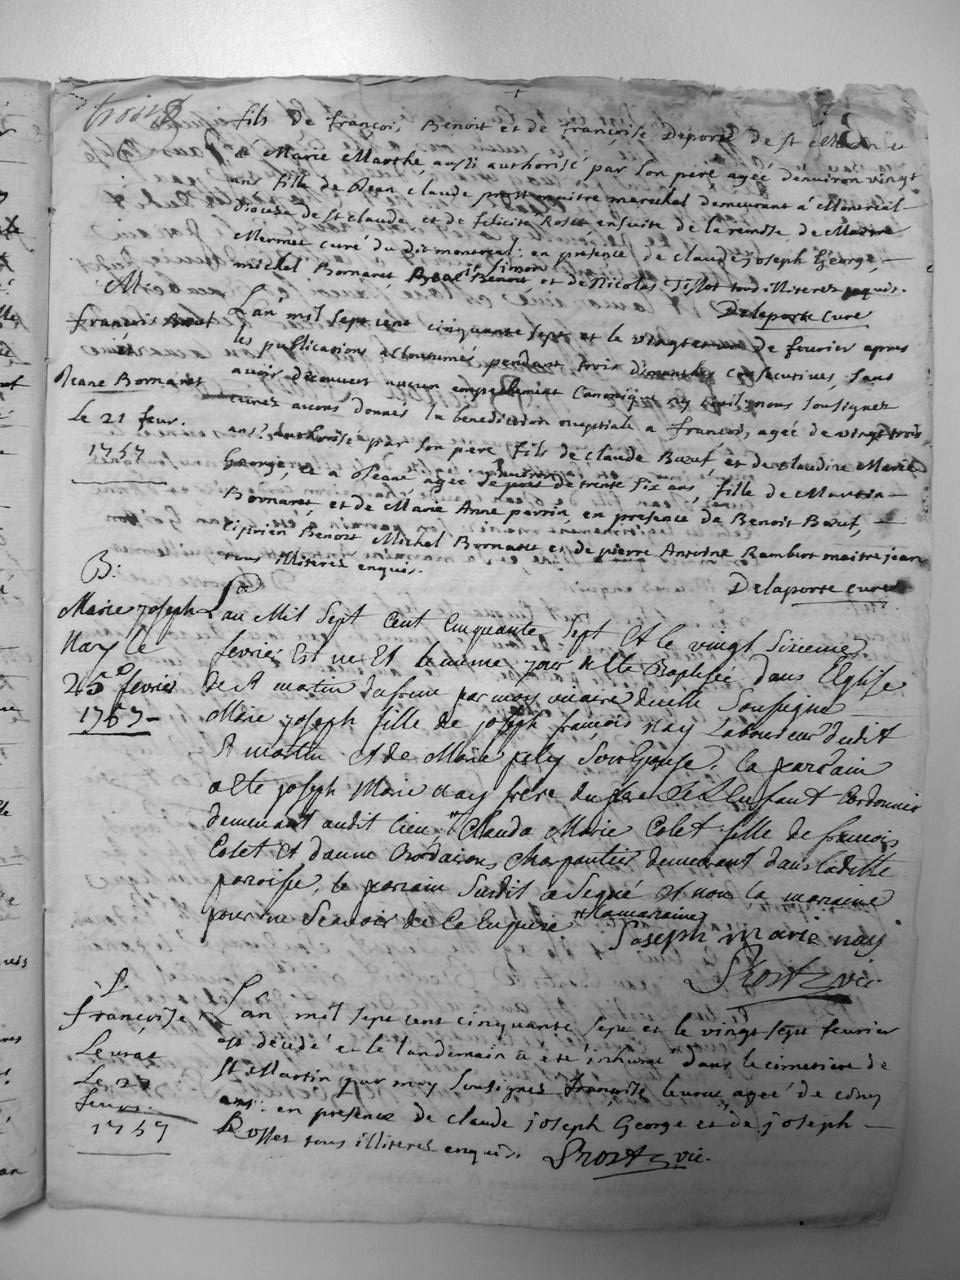 trois
fils de françois Benoit et de françoise Deporte de st Martin et
de Marie Marthe, aussi authorisé par son peré agéé denviron vingt
ans fille de Jean Claude prost maitre marechal demeurant á Montreal
Diocese de st Claude et de felicité Roset, ensuite de la remise de
Mermet curé du dit montreal: en présence de claude joseph George,
michel Bornaret, Benoit et de Nicolas Tissot tous illiterez enquis.
Delaporte cure
M
françois Bœuf
Jeane Bornaret
Le 21 feur.
1757
L'an mil sept cent cinquante sept et le vingt de fevrier apres
les publications accoutumés pendant trois dimanches consecutives, sans
avoir découvert aucun empechement Canonique ny civil, nous soussignez
curez avons donnés la benediction nuptiale a françois, ageé de vingt trois
ans, authorisé par son pere fils de Claude Bœuf, et de claudine Marie
George, et a Jeane ageé de trente six ans, fille de Martin
Bornaret, et de Marie Anne perrin, en presence de Benoit Bœuf,
Ciprien Benoit Michel Bornaret et de pierre Antoine Rambort maitre jean
tous illiterés enquis.
Delaporte curé
B:
Marie joseph
Nay le
25e fevrier
1757
L'an Mil Sept Cent Cinquante Sept Et le vingt
fevrier Est neé Et le même jour a eté Baptisée dans L'Eglise
de st martin par moy vicaire d'icelle Soussigné
Marie joseph fille de joseph françois Nay Laboureur dudit
st martin et de Marie son Epouse. le parrain
a eté joseph Marie Nay frere du pere de L'Enfant Cordonnier
demeurant audit lieu Clauda Marie Colet fille de francois
Colet Et danne charpentier demeurant dans ladite
paroisse, le parrain susdit a signé et non la maraine
pour ne scavoir de ce Enquise
la maraine
joseph marie nay
Prost vic.
S.
françoise
Leurat
Le 27
feur.
1757
L'an mil sept cent cinquante sept et le vingt sept fevrier
est décédé et le landemain a été inhumé dans le cimetiere de
St Martin par moy soussigné françoise leurat agéé de
ans: en presence de claude joseph George et de joseph
Rosset tous illiterés enquis.
Prost vic.